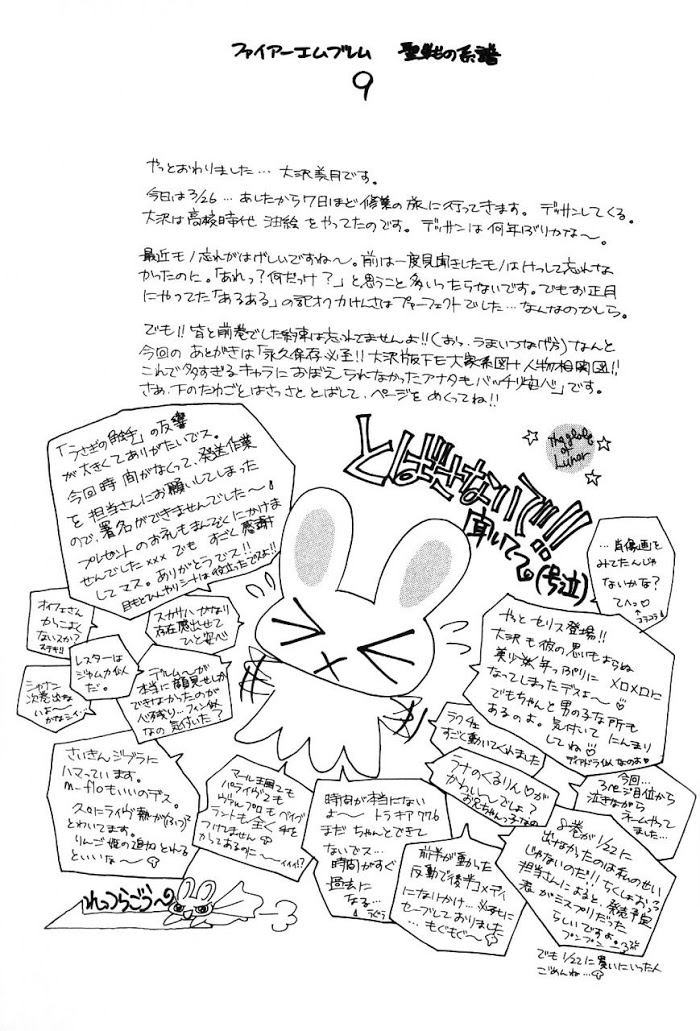 ファイアーエムブレム 聖戦の系譜
9
やっとおわりました… 大沢美月です。
今日は3/26…あしたから7日ほど修業の旅に行ってきます。デッサンしてくる。
大沢は高校時代 油絵をやってたのです。デッサンは何年ぶりかな〜。
最近モノ忘れがはげしいですね〜。前は一度見聞きしたモノはけっして忘れな
かったのに。「あれっ?何だっけ?」と思うこと多いったらないです。でもお正月
にやってた「あるある」の記オク力けんさはプァーフェクトでした…なんなのかしら。
でも!!皆と前巻でした約束は忘れてませんよ!!(おっ、うまいつなげ方)なんと
今回のあとがきは「永久保存必至!!大沢版FE大家系図+人物相関図!!
これで多すぎるキャラにおぼえられなかったアナタもバッチシ」です。
さあ、下のたわごとはさっさととばして、ページをめくってね!!
とばさないで!!
聞いてて(号泣)
the globe
of
Lunar
「うさぎの触手」の反響
が大きくてありがたいでス。
今回時間がなくって、発送作業
を担当さんにお願いしてしまった
ので、署名ができませんでした〜!
プレゼントのお礼もまんぞくにかけま
せんでした×××でも すごく感謝
してマス。ありがとうでス!!
目もとひんやりシートは役立ってマス!!
…肖像画を
みてたんじゃ
ないかな?
てへっ
コラコラ
オイフェさん
かっこよく
ないスか?
ステキ!!
スカサハかなり
存在感出せて
ひと安心
レスターは
ジャムカ似
だ。
シャナン
次巻出な
いよーな
デルムーが
本当に顔見せしか
できなかったのが
心残り…フィン似
なの気付いた?
やっとセリス登場!!
大沢も彼の思いもよらぬ
美少年っぷりに メロメロに
なってしまったデスよ〜
でもちゃんと男の子な所も
あるのよ。気付いて にんまり
してね
ディアドラ似なのよ
ラクチェ
すごく動いてくれました
ラナのくるりんが
かわいーでしょ
お兄ちゃんっ子なの
今回…
31ページ目位から
泣きながら
ネームやって
ました…
さいきんジブラに
ハマっています。
m-floもいいのデス。
久々にライヴ熱がふつふつ
とわいてます。
りんご姫の追加とれる
といいな〜
マール王国2も
パライヴ2も
ヴァルプロも ベイグ
ラントも全く手を
つけてません
かってあるのに〜
時間が本当にない
よ〜 トラキア776
まだ ちゃんとできて
ないでス…
時間がすぐ
過去に
なる…
前半が動いた
反動で後半コメディ
になりかけ…必死に
セーブしておりました
…もぐもぐ〜
8巻が1/22に
出なかったのは私のせい
じゃないのだ!!ちくしょおぅ
担当さんによると、発売予定
表がミスプリだった
らしいですよ。
プンプン
でも1/22に買いにいった人
ごめんね…
れっつらごう〜